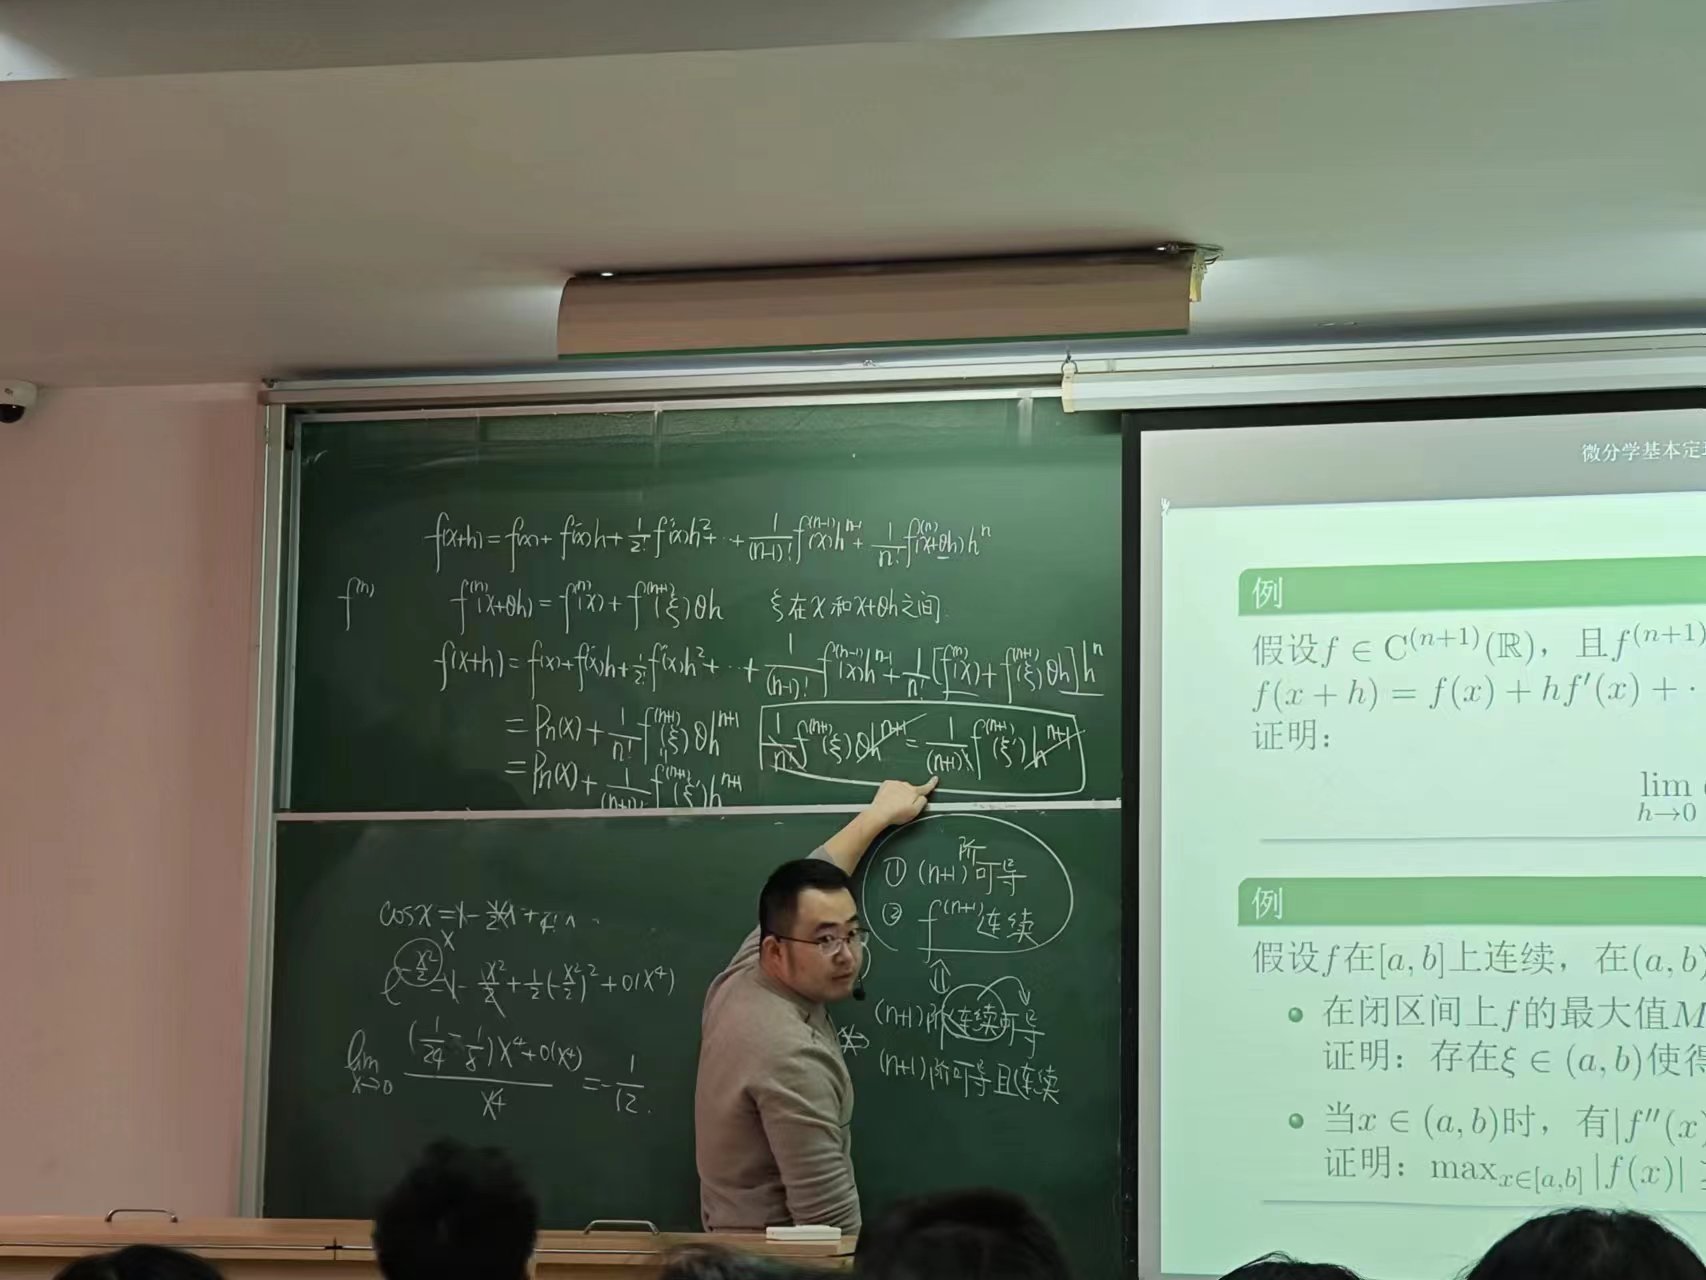 f(x+h) = f(x) + f'(x)h + 1/2! f''(x)h² + ⋯ + 1/(n-1)! f^(n-1)(x)h^(n-1) + 1/n! f^(n)(x+θh)h^n
f^(n)
f^(n)(x+θh) = f^(n)(x) + f^(n+1)(ξ)θh ξ在x和x+θh之间.
f(x+h) = f(x) + f'(x)h + 1/2! f''(x)h² + ⋯ + 1/(n-1)! f^(n-1)(x)h^(n-1) + 1/n! [f^(n)(x) + f^(n+1)(ξ)θh]h^n
= Pn(x) + 1/n! f^(n+1)(ξ)θh^(n+1)
1/n! f^(n+1)(ξ)θh^(n+1) = 1/(n+1)! f^(n+1)(ξ')h^(n+1)
= Pn(x) + 1/(n+1)! f^(n+1)(ξ')h^(n+1)
① (n+1)阶可导
② f^(n+1)连续
⇕
(n+1)阶连续可导
(n+1)阶可导且连续
e^(-x²/2) = 1 - x²/2 + 1/2(-x²/2)² + o(x⁴)
lim x→0 ((1/24 - 1/8)x⁴ + o(x⁴))/x⁴ = -1/12.
微分学基本定
例
假设f ∈ C^(n+1)(ℝ),且f^(n+1)
f(x + h) = f(x) + hf′(x) + ·
证明:
lim h→0
例
假设f在[a, b]上连续,在(a, b)
在闭区间上f的最大值M
证明:存在ξ ∈ (a, b)使得
当x ∈ (a, b)时,有|f″(x)
证明:max x∈[a,b] |f(x)|